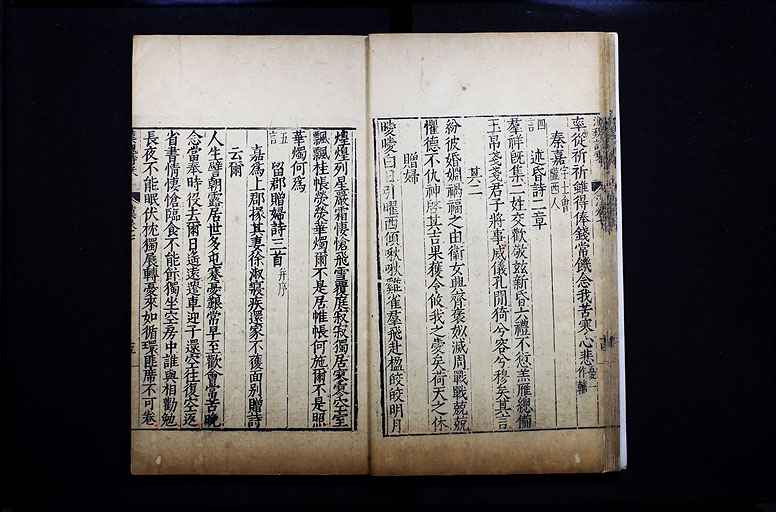 率從祈祈雖得俸錢常饑念我苦寒心悲憂一作離
秦嘉字士會隴西人
四言
述昏詩二章
羣祥旣集二姓交歡敬兹新昏六禮不愆羔雁總備
玉帛戔戔君子將事威儀孔閒猗兮容兮穆矣其言
其二
紛彼婚姻禍福之由衛女興齊褒姒滅周戰戰兢兢
懼德不仇神啓其吉果獲令攸我之愛矣荷天之休
贈婦
曖曖白日引曜西傾啾啾雞雀羣飛赴楹皎皎明月
煌煌列星嚴霜悽愴飛雪覆庭寂寂獨居寥寥空室
飄飄桂帳熒熒華燭爾不是居帷帳何施爾不是照
華燭何爲
五言
留郡贈婦詩三首并序
嘉爲上郡掾其妻徐淑寢疾還家不獲面別贈詩
云爾
人生譬朝露居世多屯蹇憂艱常早至歡會常苦晚
念當奉時役去爾日遥遠遣車迎子還空往復空返
省書情悽愴臨食不能飯獨坐空房中誰與相勸勉
長夜不能眠伏枕獨展轉憂來如循環匪席不可卷